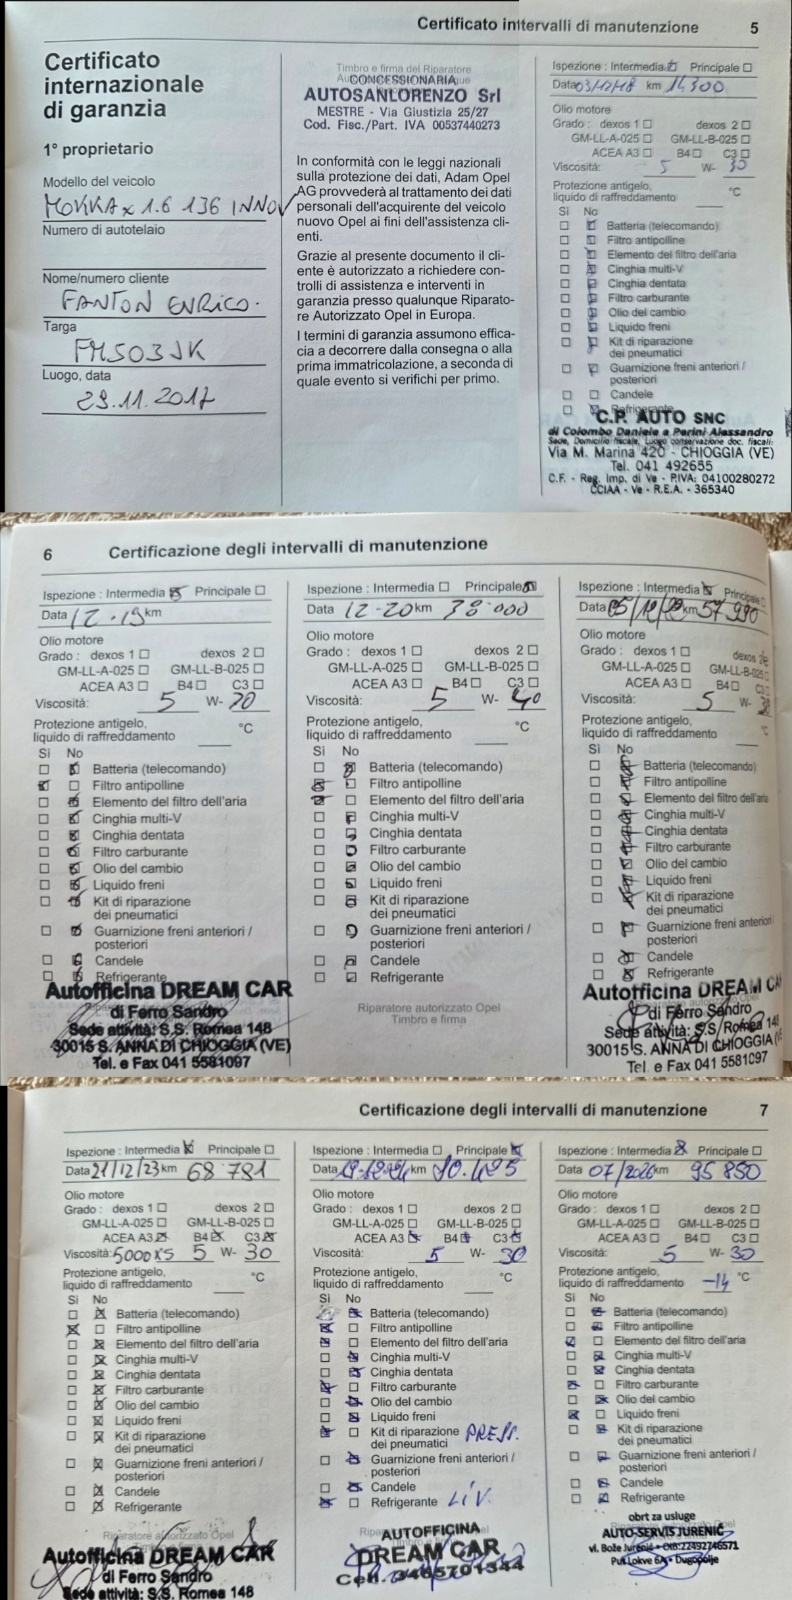 Certificato intervalli di manutenzione 5
Certificato
internazionale
di garanzia
1° proprietario
Modello del veicolo
MOKKA x 1.6 136 INNOV
Numero di autotelaio
Nome/numero cliente
FANTON ENRICO.
Targa
FM503JK
Luogo, data
29.11.2017
Timbro e firma del Riparatore
CONCESSIONARIA
AUTOSANLORENZO Srl
MESTRE - Via Giustizia 25/27
Cod. Fisc./Part. IVA 00537440273
In conformità con le leggi nazionali
sulla protezione dei dati, Adam Opel
AG provvederà al trattamento dei dati
personali dell'acquirente del veicolo
nuovo Opel ai fini dell'assistenza cli-
enti.
Grazie al presente documento il cli-
ente è autorizzato a richiedere con-
trolli di assistenza e interventi in
garanzia presso qualunque Riparato-
re Autorizzato Opel in Europa.
I termini di garanzia assumono effica-
cia a decorrere dalla consegna o alla
prima immatricolazione, a seconda di
quale evento si verifichi per primo.
Ispezione : Intermedia Principale
Data 03/12/18 km 14300
Olio motore
Grado : dexos 1 dexos 2
GM-LL-A-025 GM-LL-B-025
ACEA A3 B4 C3
Viscosità: 5 W- 30
Protezione antigelo, °C
liquido di raffreddamento
Si No
Batteria (telecomando)
Filtro antipolline
Elemento del filtro dell'aria
Cinghia multi-V
Cinghia dentata
Filtro carburante
Olio del cambio
Liquido freni
Kit di riparazione
dei pneumatici
Guarnizione freni anteriori /
posteriori
Candele
Refrigerante
C.P. AUTO SNC
di Colombo Daniele e Perini Alessandro
Sede, Domicilio fiscale, Luogo conservazione doc. fiscali:
Via M. Marina 420 - CHIOGGIA (VE)
Tel. 041 492655
C.F. - Reg. Imp. di Ve - P.IVA: 04100280272
CCIAA - Ve - R.E.A. - 365340
6 Certificazione degli intervalli di manutenzione
Ispezione : Intermedia Principale
Data 12-19 km
Olio motore
Grado : dexos 1 dexos 2
GM-LL-A-025 GM-LL-B-025
ACEA A3 B4 C3
Viscosità: 5 W- 30
Protezione antigelo, °C
liquido di raffreddamento
Si No
Batteria (telecomando)
Filtro antipolline
Elemento del filtro dell'aria
Cinghia multi-V
Cinghia dentata
Filtro carburante
Olio del cambio
Liquido freni
Kit di riparazione
dei pneumatici
Guarnizione freni anteriori /
posteriori
Candele
Refrigerante
Autofficina DREAM CAR
di Ferro Sandro
Sede attività: S.S. Romea 148
30015 S. ANNA DI CHIOGGIA (VE)
Tel. e Fax 041 5581097
Ispezione : Intermedia Principale
Data 12-20 km 38'000
Olio motore
Grado : dexos 1 dexos 2
GM-LL-A-025 GM-LL-B-025
ACEA A3 B4 C3
Viscosità: 5 W- 40
Protezione antigelo, °C
liquido di raffreddamento
Si No
Batteria (telecomando)
Filtro antipolline
Elemento del filtro dell'aria
Cinghia multi-V
Cinghia dentata
Filtro carburante
Olio del cambio
Liquido freni
Kit di riparazione
dei pneumatici
Guarnizione freni anteriori /
posteriori
Candele
Refrigerante
Riparatore autorizzato Opel
Timbro e firma
Ispezione : Intermedia Principale
Data km 57.990
Olio motore
Grado : dexos 1 dexos 2
GM-LL-A-025 GM-LL-B-025
ACEA A3 B4 C3
Viscosità: 5 W-
Protezione antigelo, °C
liquido di raffreddamento
Si No
Batteria (telecomando)
Filtro antipolline
Elemento del filtro dell'aria
Cinghia multi-V
Cinghia dentata
Filtro carburante
Olio del cambio
Liquido freni
Kit di riparazione
dei pneumatici
Guarnizione freni anteriori
posteriori
Candele
Refrigerante
Autofficina DREAM CA
di Ferro Sandro
Sede attività: S.S. Romea 148
30015 S. ANNA DI CHIOGGIA
Tel. e Fax 041 5581097
Certificazione degli intervalli di manutenzione 7
Ispezione : Intermedia Principale
Data 21/12/23 km 68 781
Olio motore
Grado : dexos 1 dexos 2
GM-LL-A-025 GM-LL-B-025
ACEA A3 B4 C3
Viscosità: 5000 KS 5 W- 30
Protezione antigelo, °C
liquido di raffreddamento
Si No
Batteria (telecomando)
Filtro antipolline
Elemento del filtro dell'aria
Cinghia multi-V
Cinghia dentata
Filtro carburante
Olio del cambio
Liquido freni
Kit di riparazione
dei pneumatici
Guarnizione freni anteriori /
posteriori
Candele
Refrigerante
Riparatore autorizzato Opel
Autofficina DREAM CAR
di Ferro Sandro
Sede attività: S.S. Romea 148
Ispezione : Intermedia Principale
Data 19-12-24 km 90.495
Olio motore
Grado : dexos 1 dexos 2
GM-LL-A-025 GM-LL-B-025
ACEA A3 B4 C3
Viscosità: 5 W- 30
Protezione antigelo, °C
liquido di raffreddamento
Si No
Batteria (telecomando)
Filtro antipolline
Elemento del filtro dell'aria
Cinghia multi-V
Cinghia dentata
Filtro carburante
Olio del cambio
Liquido freni
Kit di riparazione PRESS.
dei pneumatici
Guarnizione freni anteriori /
posteriori
Candele
Refrigerante LIV.
AUTOFFICINA
DREAM CAR
Cell. 3485701344
Ispezione : Intermedia Principale
Data 07/2026 km 95 850
Olio motore
Grado : dexos 1 dexos 2
GM-LL-A-025 GM-LL-B-025
ACEA A3 B4 C3
Viscosità: 5 W- 30
Protezione antigelo, -14 °C
liquido di raffreddamento
Si No
Batteria (telecomando)
Filtro antipolline
Elemento del filtro dell'aria
Cinghia multi-V
Cinghia dentata
Filtro carburante
Olio del cambio
Liquido freni
Kit di riparazione
dei pneumatici
Guarnizione freni anteriori /
posteriori
Candele
Refrigerante
obrt za usluge
AUTO-SERVIS JURENIĆ
vl. Bože Jurenić • OIB:22492746571
Put Lokve 6A • Dugopolje